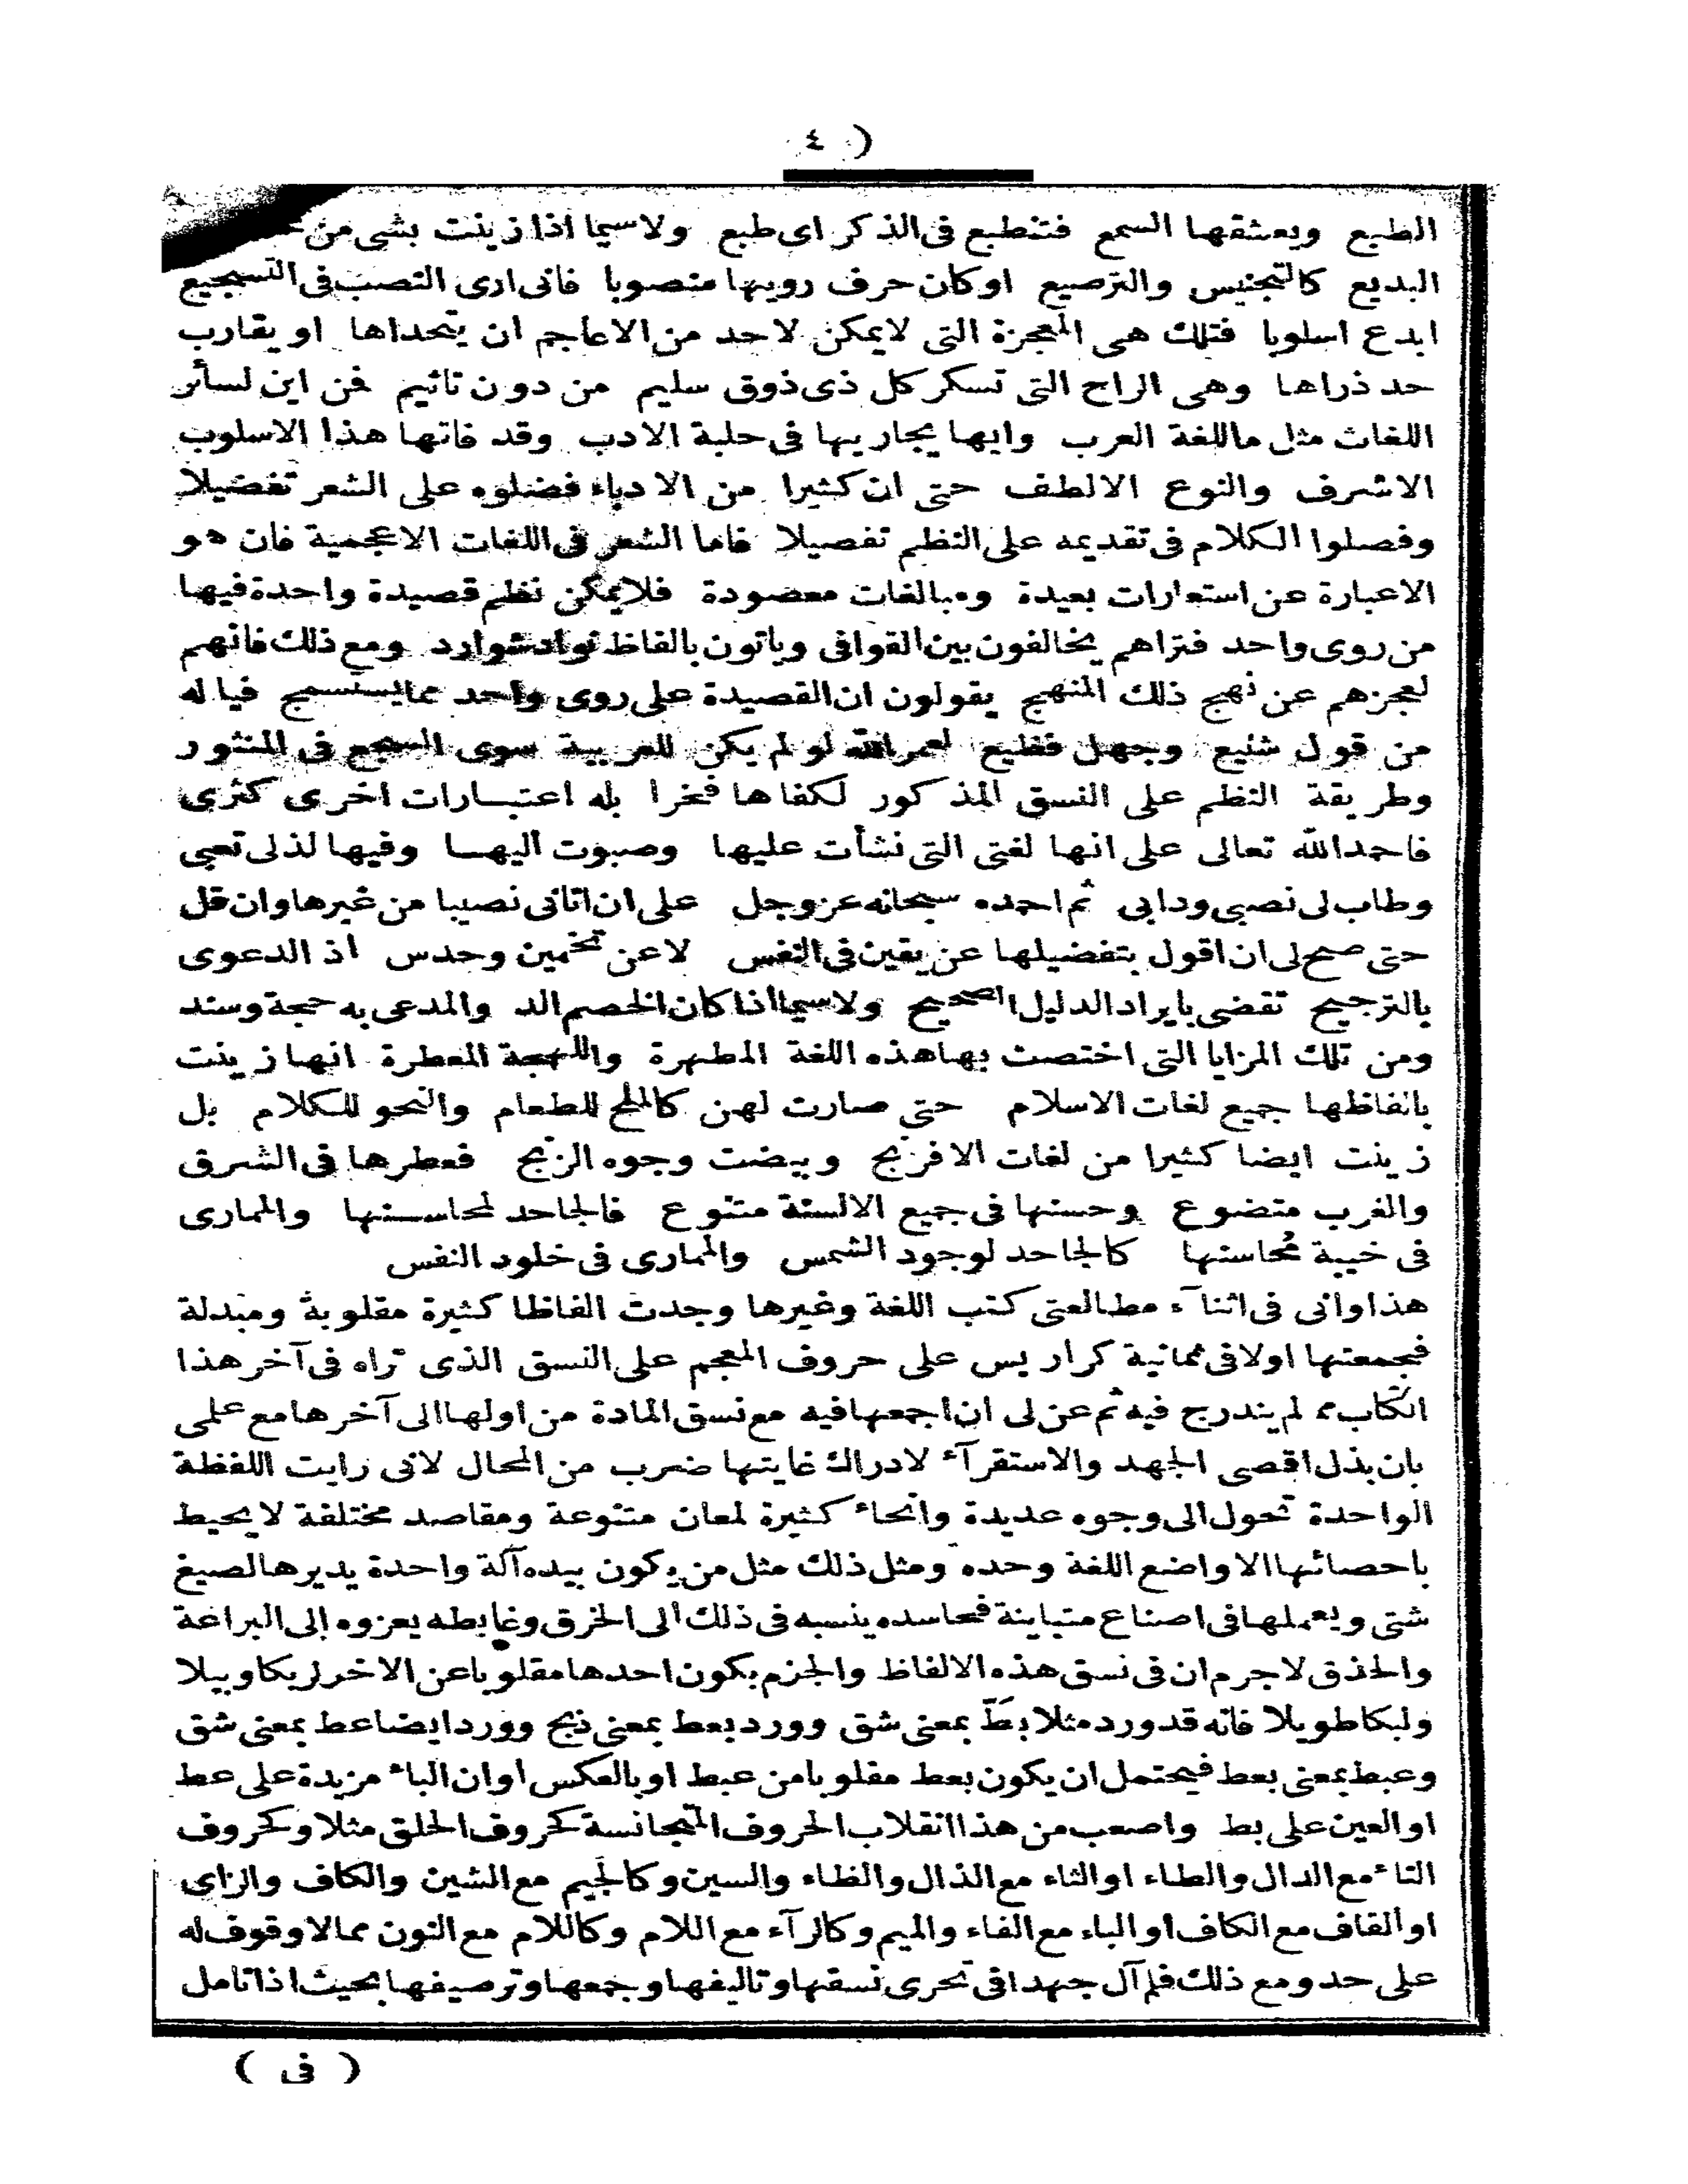 ( ٤
الطبع ويعشقها السمع فتنطبع فى الذكر اى طبع ولاسيما اذا زينت بشى من
البديع كالتجنيس والترصيع او كان حرف رويها منصوبا فانى ارى النصب فى التسجيع
ابدع اسلوبا فتلك هى المعجزة التى لايمكن لاحد من الاعاجم ان يتحداها او يقارب
حد ذراها وهى الراح التى تسكر كل ذى ذوق سليم من دون تاثيم فمن اين لسائر
اللغات مثل ماللغة العرب وايها يجاريها فى حلبة الادب وقد فاتها هذا الاسلوب
الاشرف والنوع الالطف حتى ان كثيرا من الادباء فضلوه على الشعر تفضيلا
وفصلوا الكلام فى تقديمه على النظم تفصيلا فاما الشعر فى اللغات الاعجمية فان هو
الاعبارة عن استعارات بعيدة ومبالغات معصودة فلايمكن نظم قصيدة واحدة فيها
من روى واحد فتراهم يخالفون بين القوافى وياتون بالفاظ شوارد ومع ذلك فانهم
لعجزهم عن نهج ذلك المنهج يقولون ان القصيدة على روى واحد مما يستسمج فيا له
من قول شنيع وجهل فظيع لعمر الله لو لم يكن للعربية سوى السجع فى المنثور
وطريقة النظم على النسق المذكور لكفاها فخرا بله اعتبارات اخرى كثرى
فاحمد الله تعالى على انها لغتى التى نشأت عليها وصبوت اليها وفيها لذلى تعبى
وطاب لى نصبى ودابى ثم احمده سبحانه عز وجل على ان اتانى نصيبا من غيرها وان قل
حتى صح لى ان اقول بتفضيلها عن يقين فى النفس لاعن تخمين وحدس اذ الدعوى
بالترجيح تقضى بايراد الدليل الصحيح ولاسيما اذا كان الخصم الد والمدعى به حجة وسند
ومن تلك المزايا التى اختصت بها هذه اللغة المطهرة واللهجة المعطرة انها زينت
بالفاظها جميع لغات الاسلام حتى صارت لهن كالملح للطعام والنحو للكلام بل
زينت ايضا كثيرا من لغات الافرنج وبيضت وجوه الزنج فعطرها فى الشرق
والغرب متضوع وحسنها فى جميع الالسنة متنوع فالجاحد لمحاسنها والممارى
فى خيبة مُحاسنها كالجاحد لوجود الشمس والممارى فى خلود النفس
هذا وانى فى اثنآء مطالعتى كتب اللغة وغيرها وجدت الفاظا كثيرة مقلوبة ومبدلة
فجمعتها اولا فى ثمانية كراريس على حروف المعجم على النسق الذى تراه فى آخر هذا
الكتاب مما لم يندرج فيه ثم عن لى ان اجمعها فيه مع نسق المادة من اولها الى آخرها مع علمى
بان بذل اقصى الجهد والاستقرآء لادراك غايتها ضرب من المحال لانى رايت اللفظة
الواحدة تحول الى وجوه عديدة وانحاء كثيرة لمعان متنوعة ومقاصد مختلفة لا يحيط
باحصائها الا واضع اللغة وحده ومثل ذلك مثل من يكون بيده آلة واحدة يديرها لصيغ
شتى ويعملها فى اصناع متباينة فحاسده ينسبه فى ذلك الى الخرق وغابطه يعزوه إلى البراعة
والحذق لاجرم ان فى نسق هذه الالفاظ والجزم بكون احدها مقلوبا عن الاخر لربكا وبيلا
ولبكا طويلا فانه قد ورد مثلا بَطّ بمعنى شق وورد بعط بمعنى ذبح وورد ايضا عط بمعنى شق
وعبط بمعنى بعط فيحتمل ان يكون بعط مقلوبا من عبط او بالعكس او ان الباء مزيدة على عط
او العين على بط واصعب من هذا انقلاب الحروف المتجانسة كحروف الحلق مثلا وكحروف
التاء مع الدال والطاء او الثاء مع الذال والظاء والسين وكالجيم مع الشين والكاف والزاى
او القاف مع الكاف او الباء مع الفاء والميم وكالرآء مع اللام وكاللام مع النون مما لا وقوف له
على حد ومع ذلك فلم آل جهدا فى تحرى نسقها وتاليفها وجمعها وترصيفها بحيث اذا تامل
( فى )